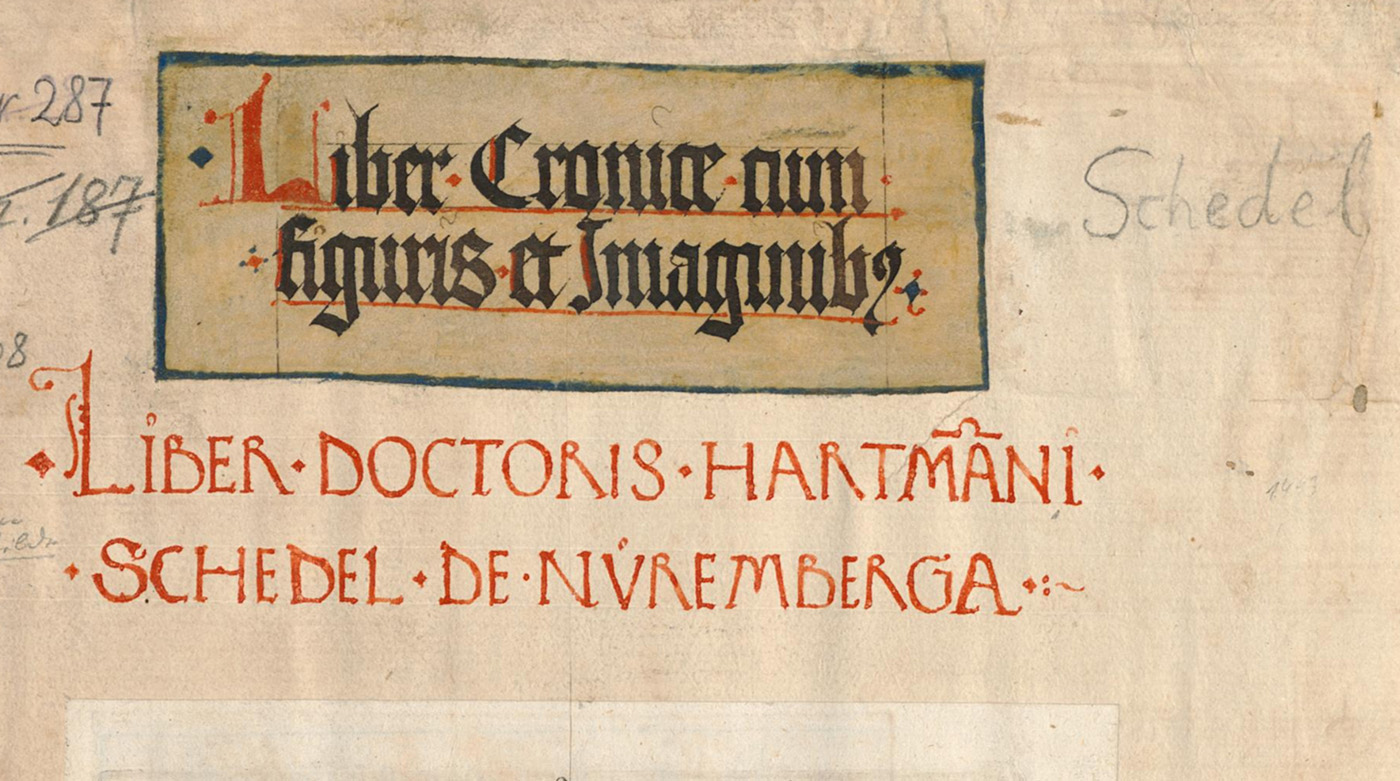 287
187
Liber · Cronice · cum
figuris · et Imaginibꝫ
Schedel
LIBER · DOCTORIS · HARTMĀNI ·
SCHEDEL · DE · NVREMBERGA